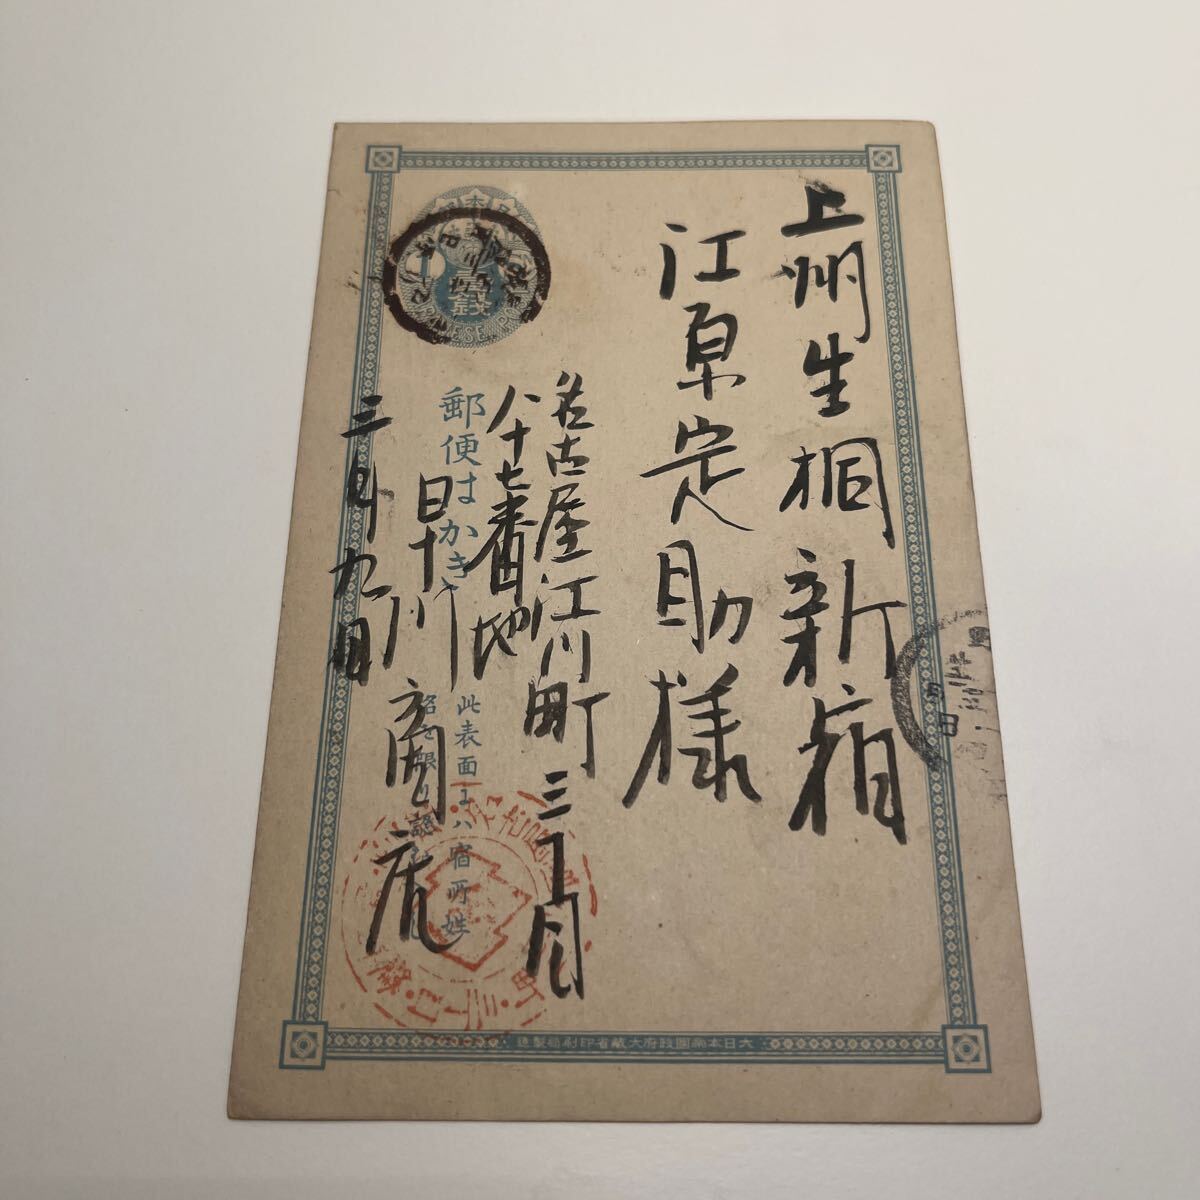 上州生桐新宿
江原定助様
名古屋江川町三丁目
八十七番地
早川商店
三月九日
郵便はかき
此表面ニハ宿所姓
名を限り認
壹銭
大日本帝國政府大藏省印刷局製造